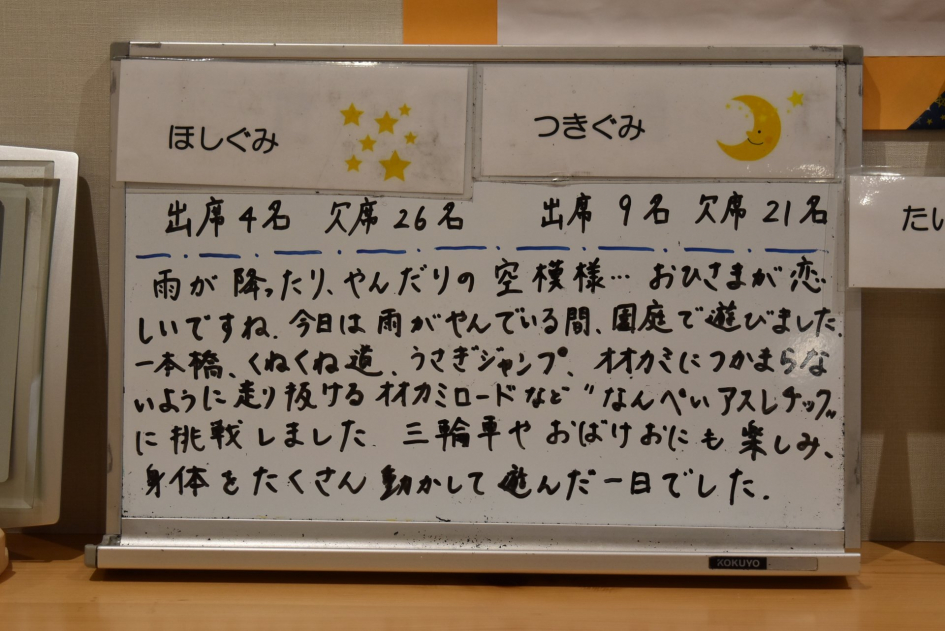 ほしぐみ
つきぐみ
出席4名 欠席26名
出席 9名 欠席 21名
雨が降ったり、やんだりの空模様… おひさまが恋
しいですね。今日は雨がやんでいる間、園庭で遊びました。
一本橋、くねくね道、うさぎジャンプ、オオカミにつかまらな
いように走り抜けるオオカミロードなど"なんぺいアスレチック"
に挑戦しました。三輪車やおばけおにも楽しみ、
身体をたくさん動かして遊んだ一日でした。
たい
KOKUYO